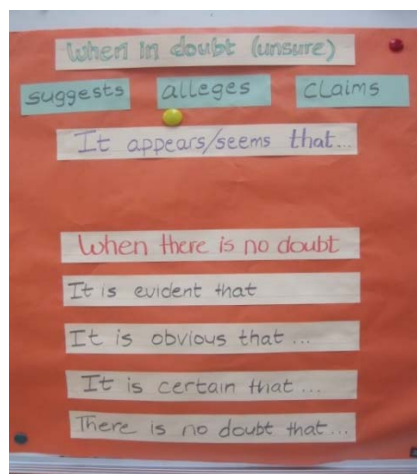 When in doubt (unsure)
suggests alleges claims
It appears/seems that...
When there is no doubt
It is evident that
It is obvious that ...
It is certain that ...
There is no doubt that...